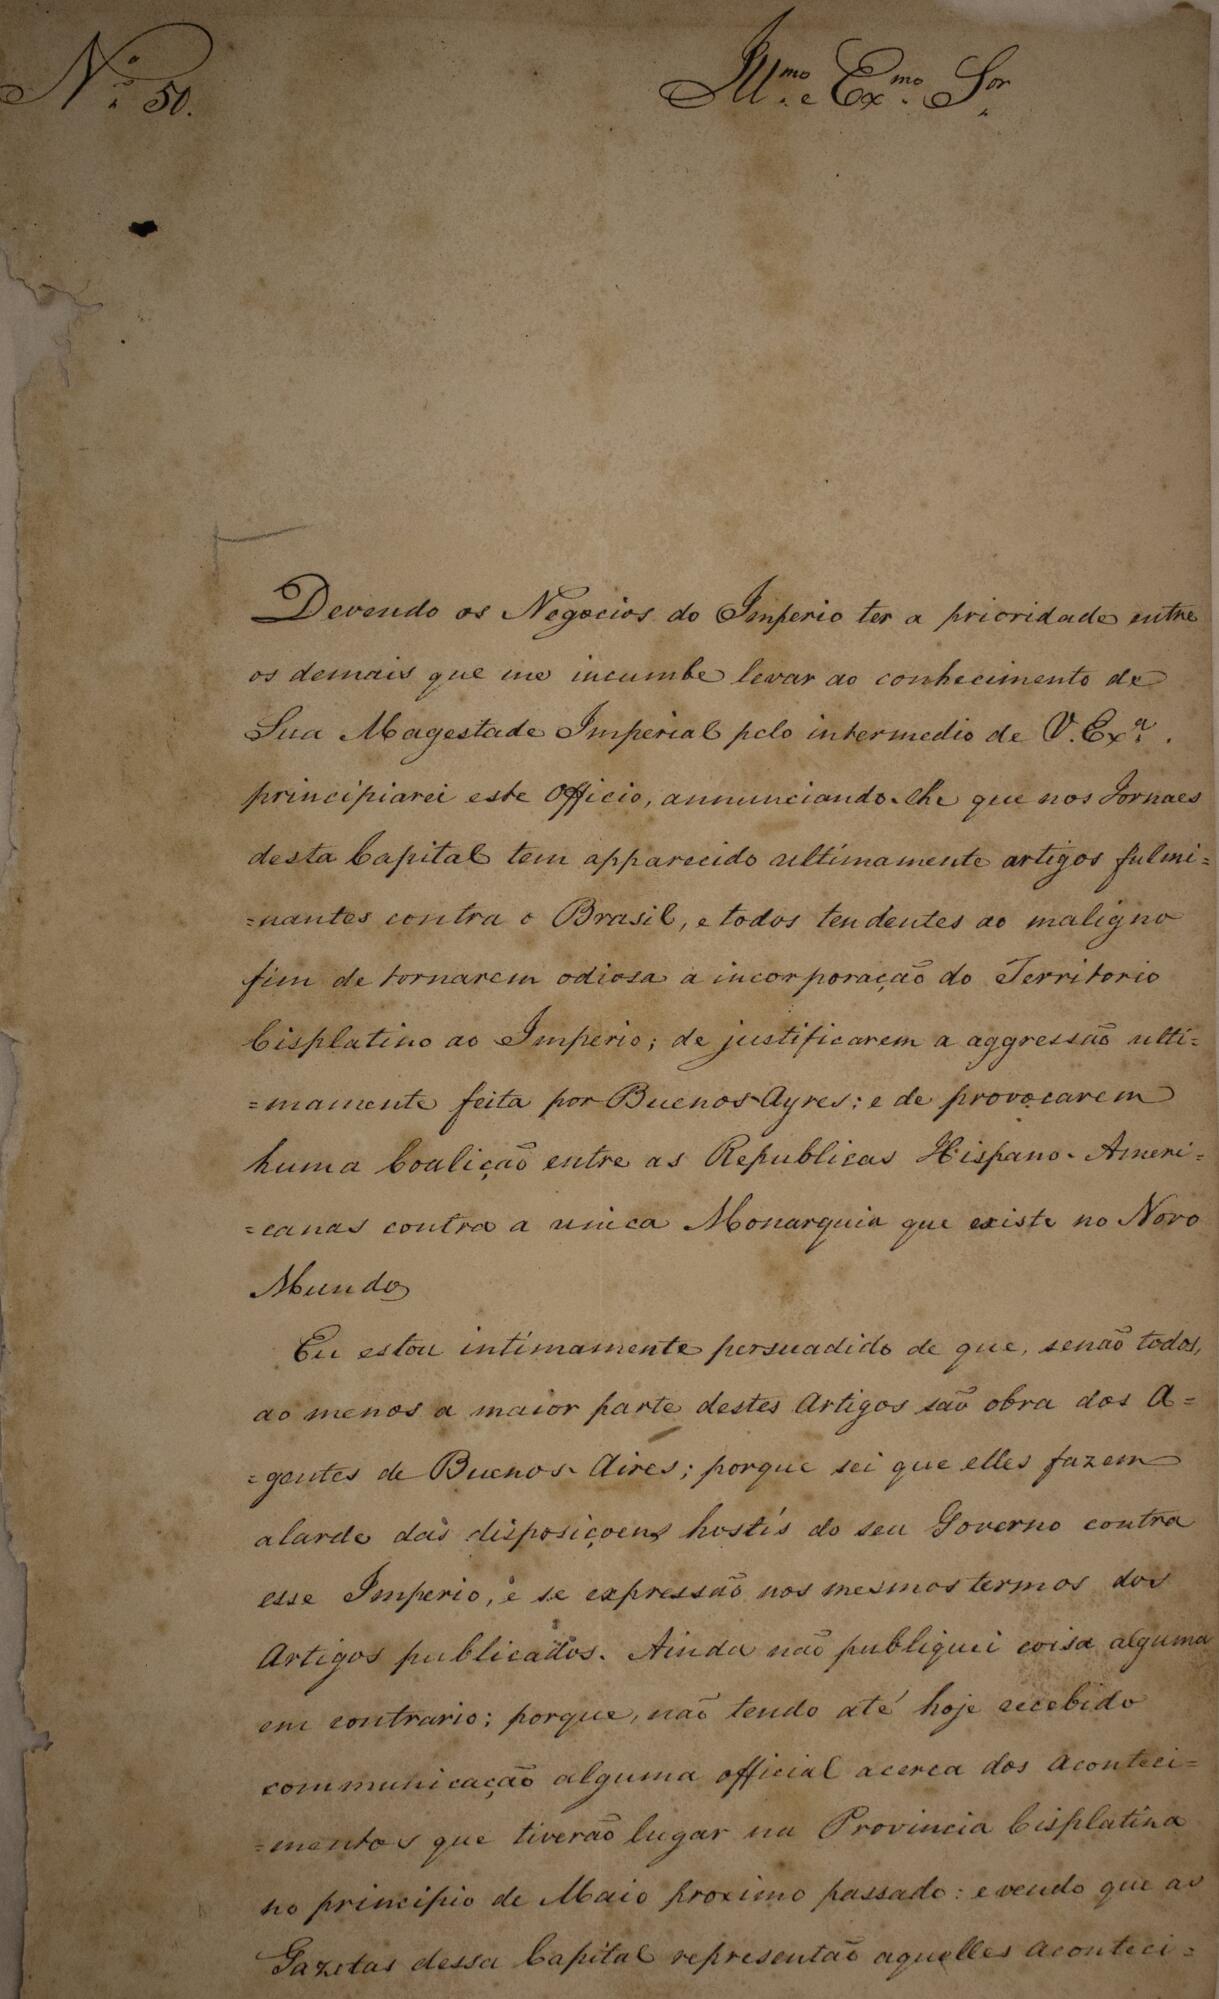 N.º 50.
Ill.mo e Ex.mo Sor.
Devendo os Negocios do Imperio ter a prioridade entre
os demais que me incumbe levar ao conhecimento de
Sua Magestade Imperial pelo intermedio de V. Ex.ª.
principiarei este Officio, annunciando-lhe que nos Jornaes
desta Capital tem apparecido ultimamente artigos fulmi=
=nantes contra o Brasil, e todos tendentes ao maligno
fim de tornarem odiosa a incorporação do Territorio
Cisplatino ao Imperio; de justificarem a aggressão ulti=
=mamente feita por Buenos-Ayres; e de provocarem
huma Coalição entre as Republicas Hispano-Ameri=
=canas contra a unica Monarquia que existe no Novo
Mundo
Eu estou intimamente persuadido de que, senão todos,
ao menos a maior parte destes Artigos são obra dos A=
=gentes de Buenos-Aires; porque sei que elles fazem
alarde das disposiçoens hostís do seu Governo contra
esse Imperio, e se expressão nos mesmos termos dos
Artigos publicados. Ainda não publiquei coisa alguma
em contrario; porque, não tendo até hoje recebido
communicação alguma official acerca dos aconteci=
=mentos que tiverão lugar na Provincia Cisplatina
no principio de Maio proximo passado: e vendo que as
Gazetas dessa Capital representão aquelles aconteci=